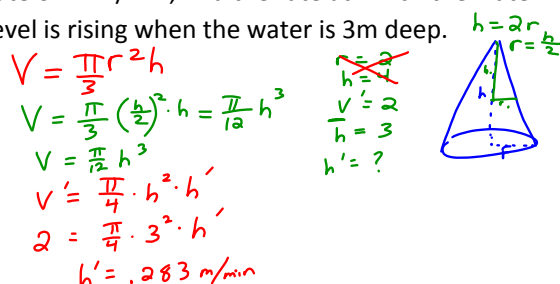 evel is rising when the water is 3m deep.
h = 2r
r = h/2
V = π/3 r²h
r = 2
h = 4
V = π/3 (h/2)² · h = π/12 h³
V' = 2
h = 3
V = π/12 h³
h' = ?
V' = π/4 · h² · h'
2 = π/4 · 3² · h'
h' = .283 m/min
h
r
r